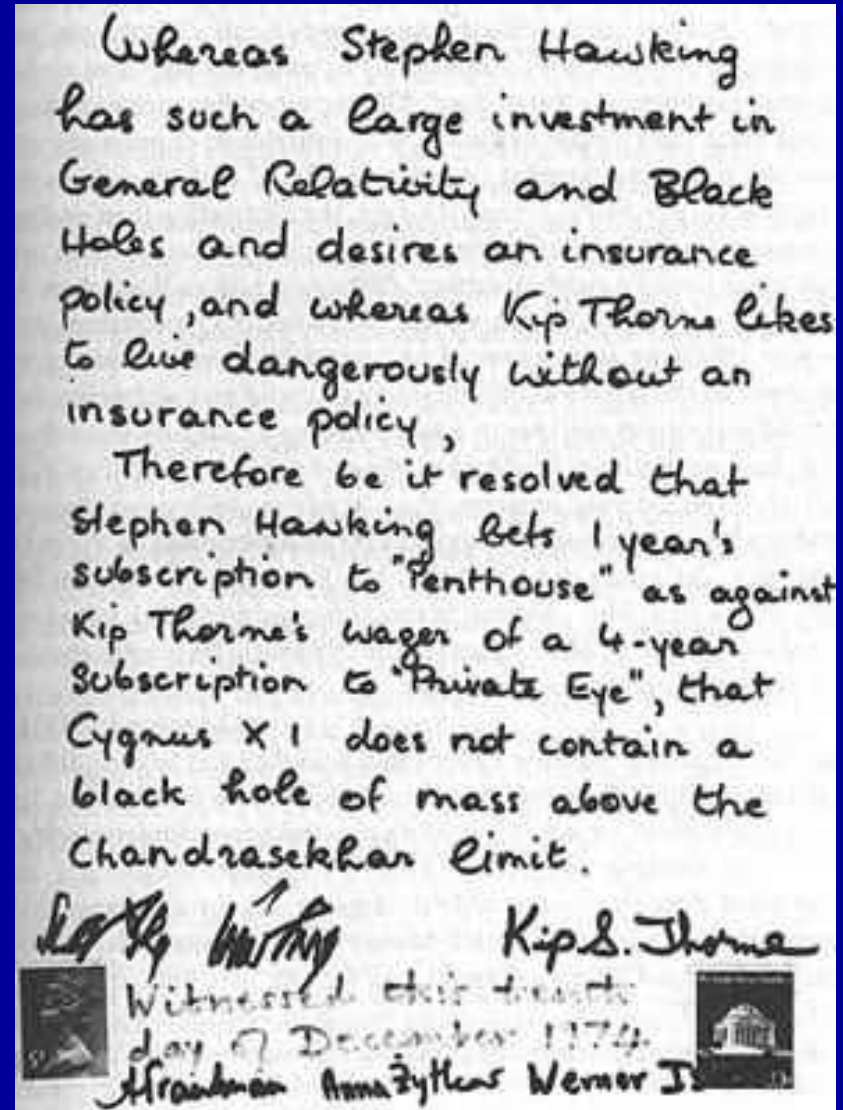 Whereas Stephen Hawking
has such a large investment in
General Relativity and Black
Holes and desires an insurance
policy, and whereas Kip Thorne likes
to live dangerously without an
insurance policy,
Therefore be it resolved that
Stephen Hawking bets 1 year's
subscription to "Penthouse" as against
Kip Thorne's wager of a 4-year
Subscription to "Private Eye", that
Cygnus X 1 does not contain a
black hole of mass above the
Chandrasekhar limit.
Kip S. Thorne
Witnessed this tenth
day of December 1974
Anna Żytkow Werner